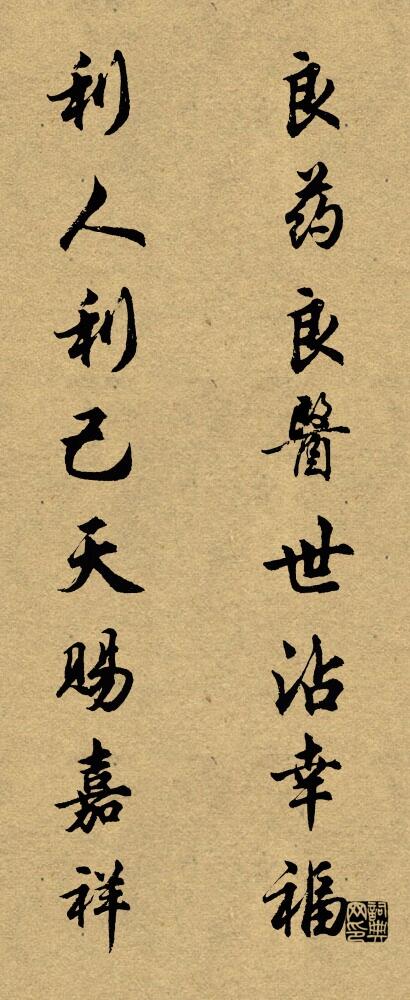 良药良醫世沾幸福
利人利己天赐嘉祥
詞典网印